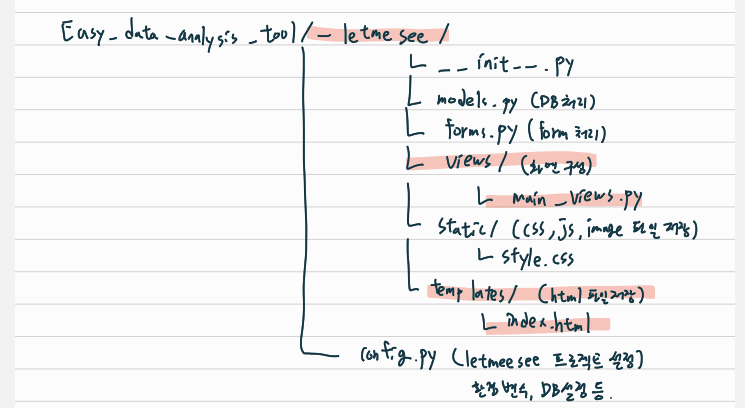 Easy_data_analysis_tool/ - letmesee /
__init__.py
models.py (DB처리)
forms.py (form 처리)
views/ (화면 구성)
main_views.py
static/ (css, js, image 파일 저장)
style.css
templates/ (html 파일저장)
index.html
config.py (letmeesee 프로젝트 설정)
환경변수, DB설정 등.